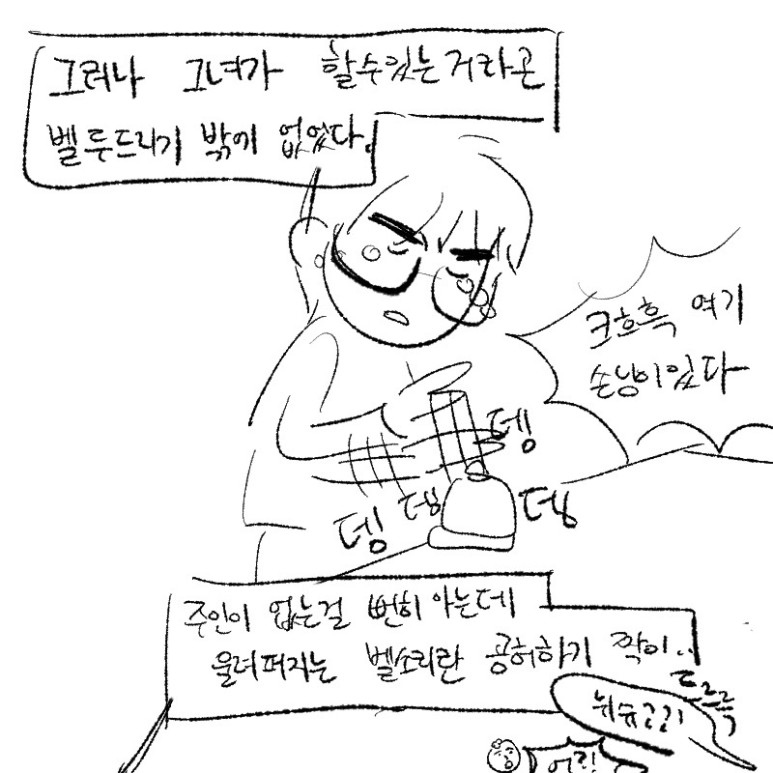 그러나 그녀가 할수있는거라곤
벨 두드리기 밖에 없었다.
크흐흑 여기
손님이있다
뎅
뎅
뎅
뎅
주인이 없는걸 뻔히 아는데
울려퍼지는 벨소리란 공허하기 짝이..
드르륵
뉘슈??!